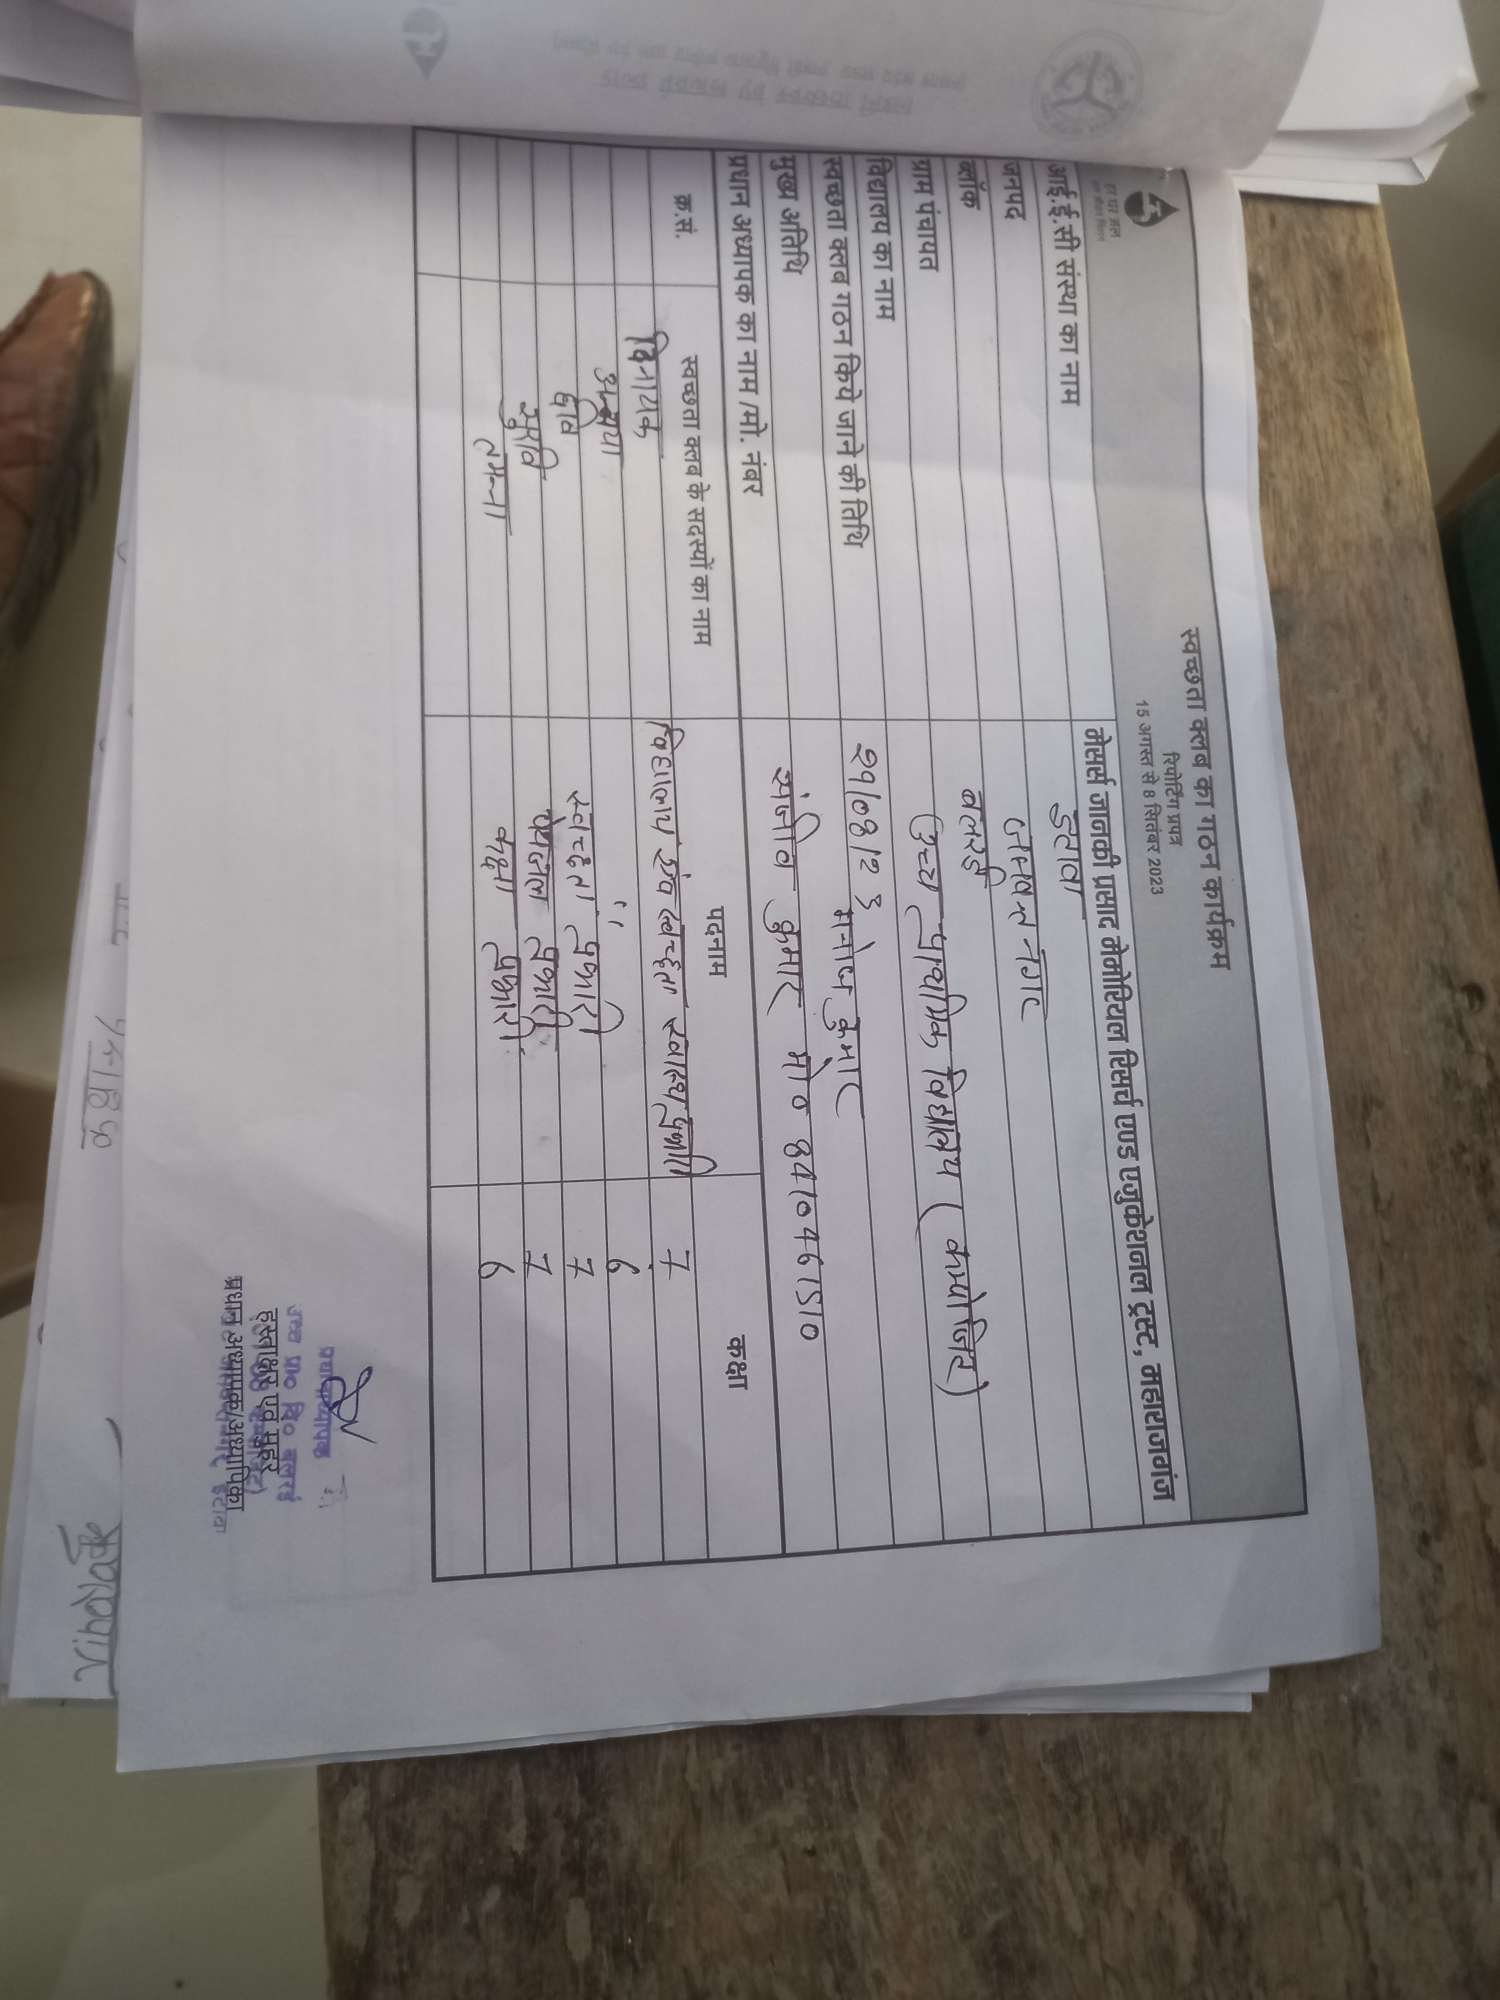 स्वच्छता क्लब का गठन कार्यक्रम
रिपोर्टिंग प्रपत्र
15 अगस्त से 8 सितंबर 2023
हर घर जल
आई.ई.सी संस्था का नाम मेसर्स जानकी प्रसाद मेमोरियल रिसर्च एण्ड एजुकेशनल ट्रस्ट, महाराजगंज
जनपद इटावा
ब्लॉक जसवन्त नगर
ग्राम पंचायत बलरई
विद्यालय का नाम उच्च प्राथमिक विद्यालय (कम्पोजिट)
स्वच्छता क्लब गठन किये जाने की तिथि
मुख्य अतिथि मनोज कुमार
प्रधान अध्यापक का नाम /मो. नंबर संजीव कुमार मो० 8410461510
क्र.सं. स्वच्छता क्लब के सदस्यों का नाम पदनाम कक्षा
विनायक विद्यालय एंव स्वच्छता स्वास्थ्य प्रभारी 7
" 6
स्वच्छता प्रभारी 7
सुरवि पेयजल प्रभारी 7
तमन्ना कक्षा प्रभारी 6
प्रधानाध्यापक
उच्च प्रा० वि० बलरई
हस्ताक्षर एवं मुहर
प्रधान अध्यापक/अध्यापिका
Vinayak